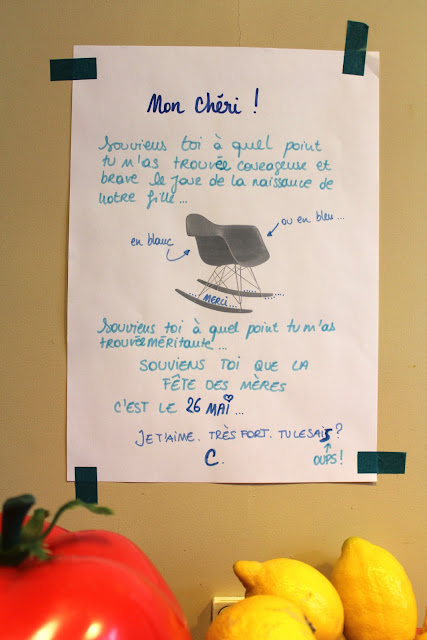 Mon chéri !
Souviens toi à quel point
tu m'as trouvée courageuse et
brave le jour de la naissance de
notre fille...
ou en bleu...
en blanc
MERCI
Souviens toi à quel point tu m'as
trouvée méritante...
SOUVIENS TOI QUE LA
FÊTE DES MÈRES
C'EST LE 26 MAI...
JE T'AIME. TRÈS FORT. TU LE SAIS ?
OUPS !
C.